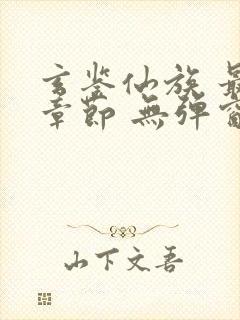 玄鉴仙族 最
章節 無彈窗
山下文吾